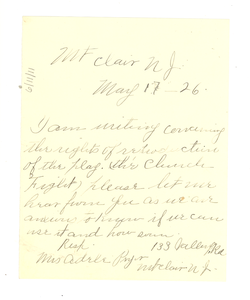 Mt Clair N.J.
May 17 - 26.
I am writing concerning
the rights of
of the play. The Church
Fight, please let me
hear from you as we are
anxious to know if we can
use it and how soon.
Resp. 133 Valley Rd
Mrs Adele
Mt Clair N.J.